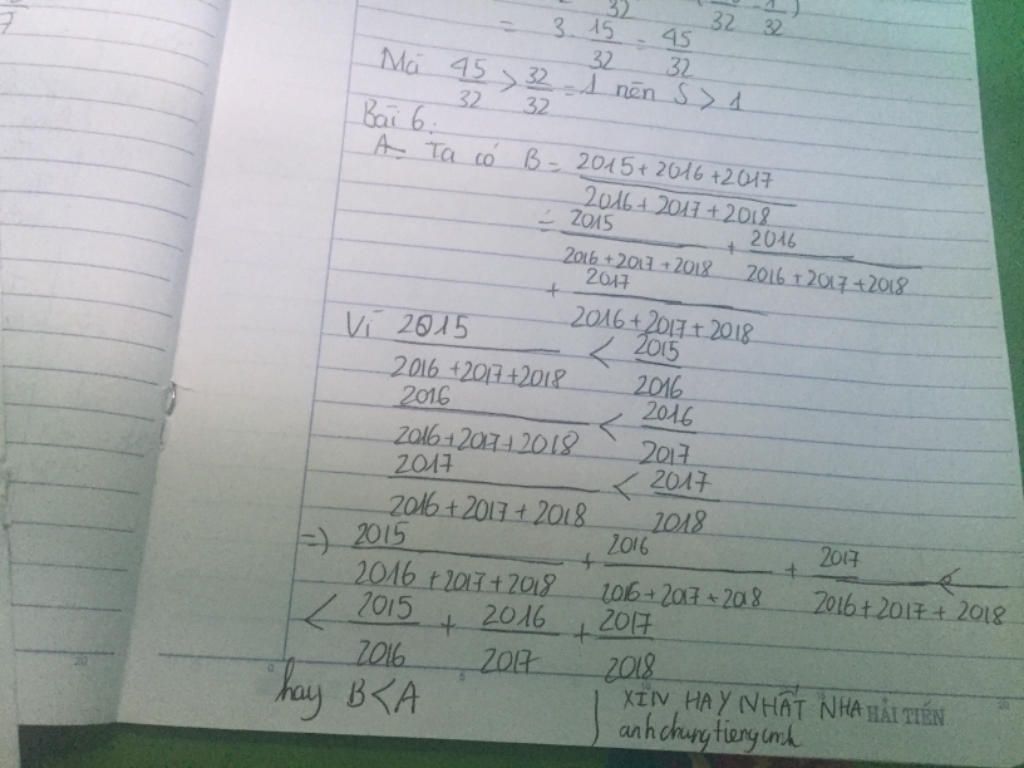 7
32 32 32
= 3 15/32 = 45/32
Mà 45/32 > 32/32 = 1 nên S > 1
Bài 6:
A- Ta có B = 2015+2016+2017
2016+2017+2018
= 2015 + 2016
2016+2017+2018 2016+2017+2018
+ 2017
2016+2017+2018
Vì 2015 < 2015
2016+2017+2018 2016
2016 < 2016
2016+2017+2018 2017
2017 < 2017
2016+2017+2018 2018
=) 2015 + 2016 + 2017 <
2016+2017+2018 2016+2017+2018 2016+2017+2018
< 2015 + 2016 + 2017
2016 2017 2018
hay B < A
XIN HAY NHẤT NHA
HẢI TIẾN